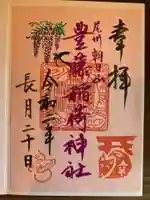 奉拝
尾州
豊藤稲荷神社
令和二年
長月二十日